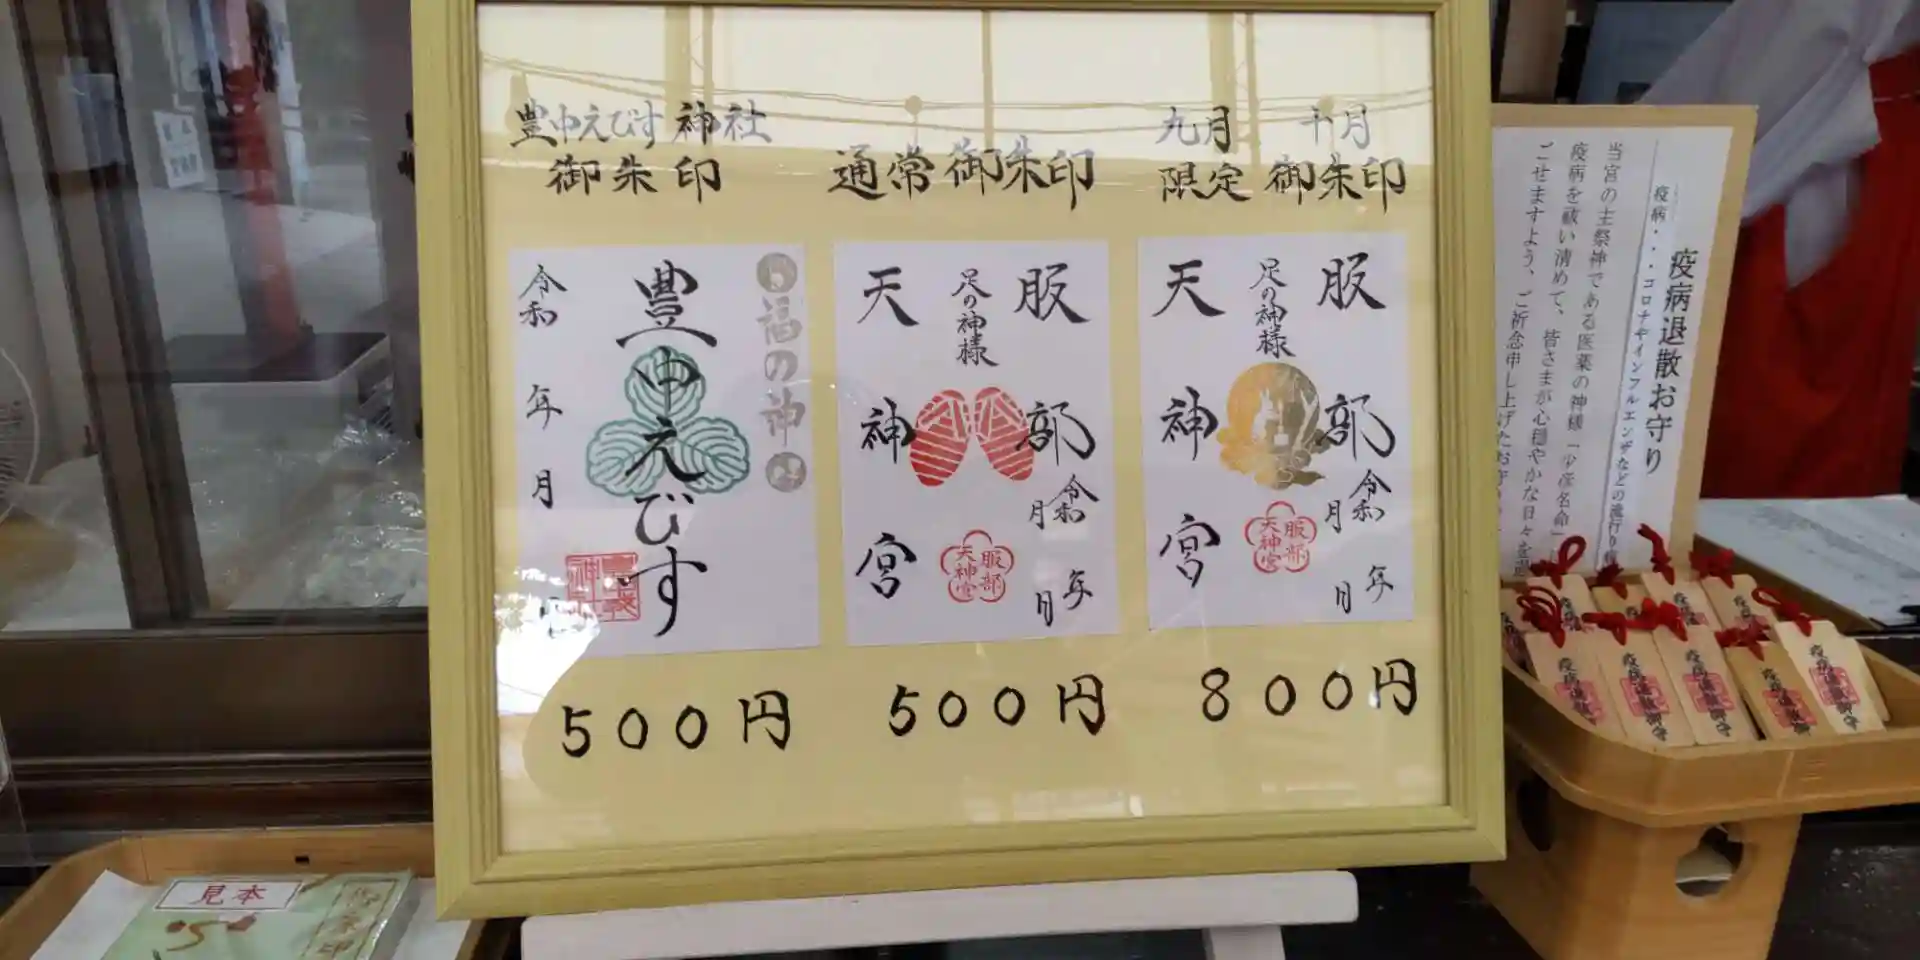 豊中えびす神社
御朱印
通常御朱印
九月 十月
限定 御朱印
福の神
豊中えびす
令和 年 月
服部
足の神様
天神宮
令和 年
月 月
服部
天神宮
服部
足の神様
天神宮
令和 年
月 月
服部
天神宮
500円
500円
800円
疫病退散お守り
疫病・・・コロナやインフルエンザなどの流行り
当宮の主祭神である医薬の神様「少彦名命」
疫病を祓い清めて、皆さまが心穏やかな日々を
ごせますよう、ご祈念申し上げたお守
疫病退散御守
疫病退散御守
疫病退散御守
疫病退散御守
疫病退散御守
見本
御朱印